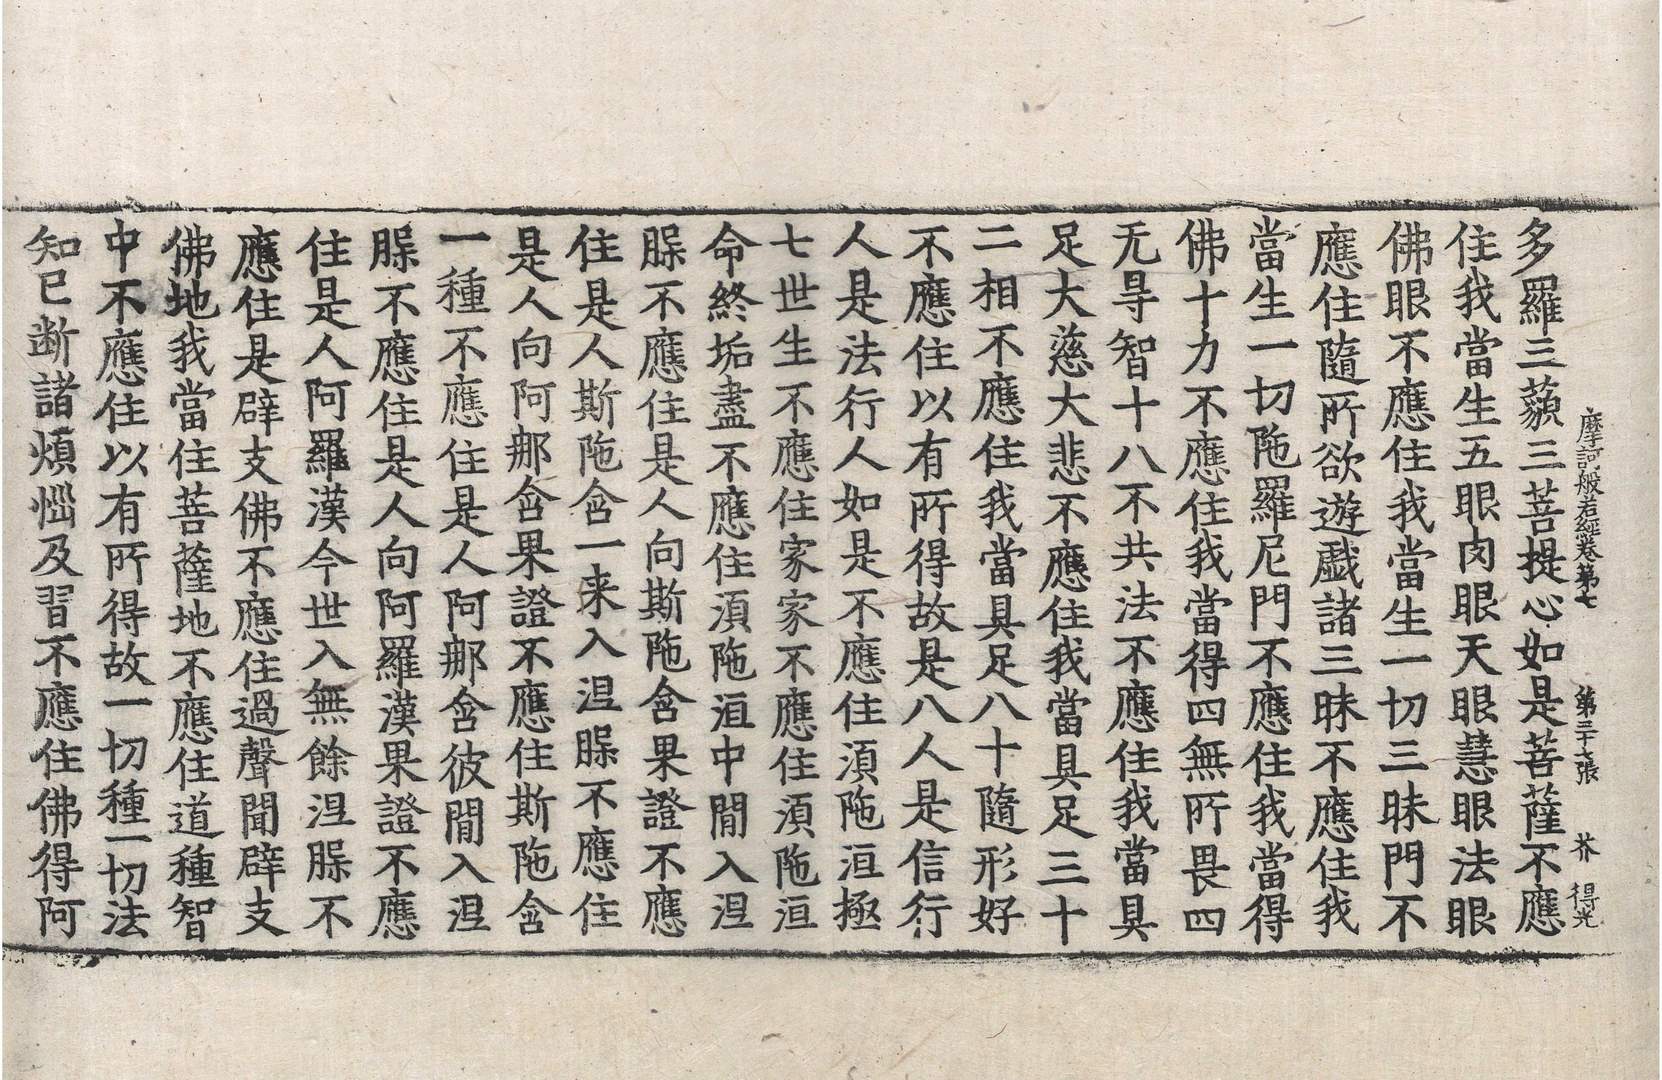 摩訶般若經卷第七　第三十七張　芥　得光
多羅三藐三菩提心如是菩薩不應
住我當生五眼肉眼天眼慧眼法眼
佛眼不應住我當生一切三昧門不
應住隨所欲遊戲諸三昧不應住我
當生一切陁羅尼門不應住我當得
佛十力不應住我當得四無所畏四
无㝵智十八不共法不應住我當具
足大慈大悲不應住我當具足三十
二相不應住我當具足八十隨形好
不應住以有所得故是八人是信行
人是法行人如是不應住湏陁洹極
七世生不應住家家不應住湏陁洹
命終垢盡不應住湏陁洹中閒入涅
槃不應住是人向斯陁含果證不應
住是人斯陁含一来入涅槃不應住
是人向阿那含果證不應住斯陁含
一種不應住是人阿那含彼閒入涅
槃不應住是人向阿羅漢果證不應
住是人阿羅漢今世入無餘涅槃不
應住是辟支佛不應住過聲聞辟支
佛地我當住菩薩地不應住道種智
中不應住以有所得故一切種一切法
知已断諸煩惱及習不應住佛得阿